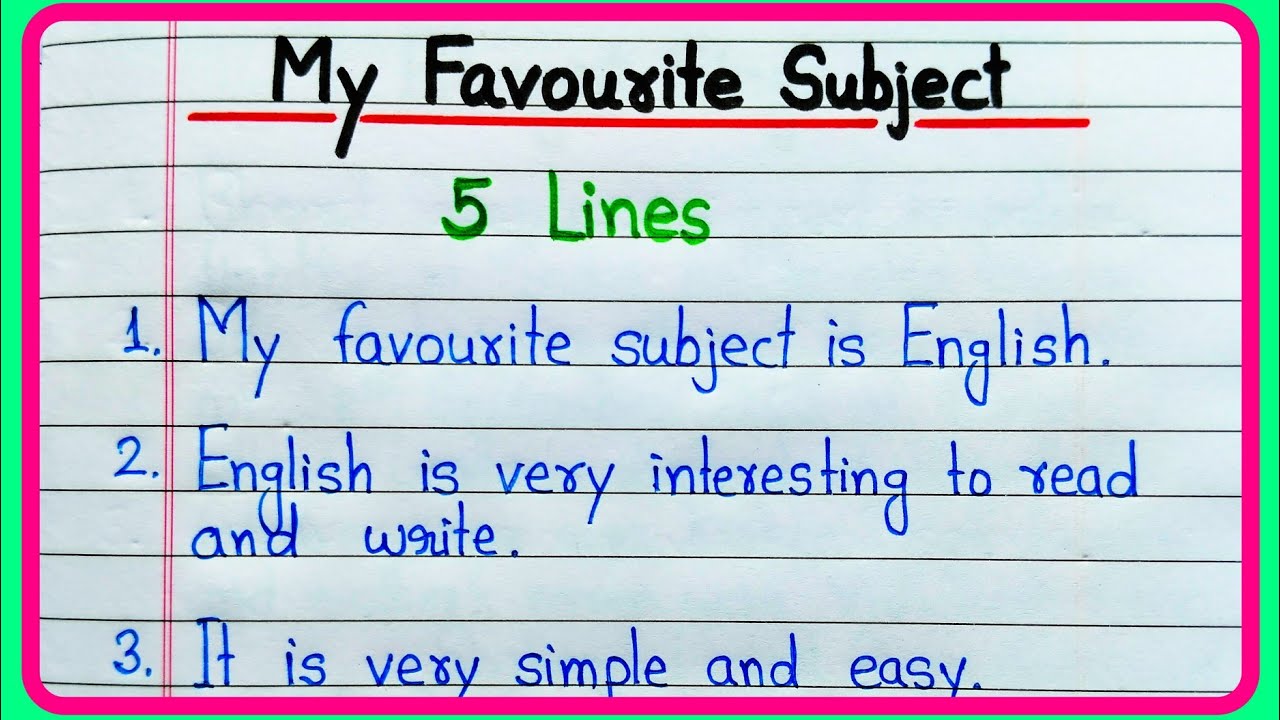 My Favourite Subject
5 Lines
1. My favourite subject is English.
2. English is very interesting to read
and write.
3. It is very simple and easy.